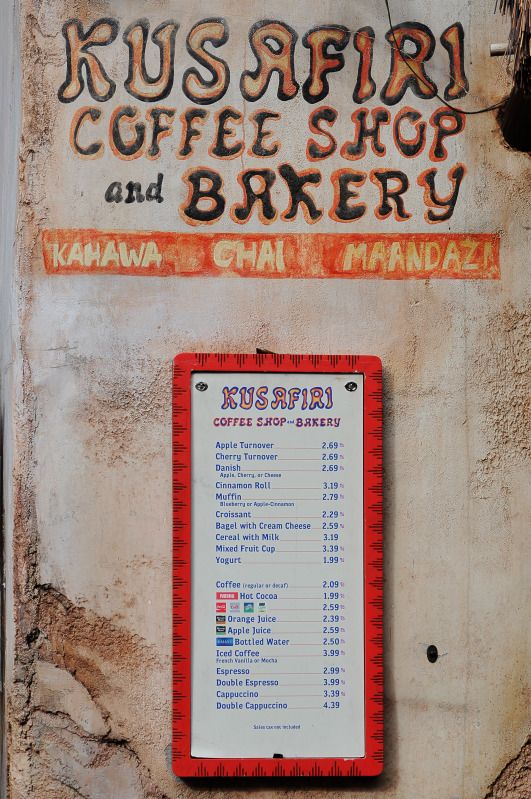 KUSAFIRI
COFFEE SHOP
and BAKERY
KAHAWA CHAI MAANDAZI
KUSAFIRI
COFFEE SHOP and BAKERY
Apple Turnover 2.69
Cherry Turnover 2.69
Danish 2.69
Apple, Cherry, or Cheese
Cinnamon Roll 3.19
Muffin 2.79
Blueberry or Apple-Cinnamon
Croissant 2.29
Bagel with Cream Cheese 2.59
Cereal with Milk 3.19
Mixed Fruit Cup 3.39
Yogurt 1.99
Coffee (regular or decaf) 2.09
Hot Cocoa 1.99
2.59
Orange Juice 2.39
Apple Juice 2.59
Bottled Water 2.50
Iced Coffee 3.99
French Vanilla or Mocha
Espresso 2.99
Double Espresso 3.99
Cappuccino 3.39
Double Cappuccino 4.39
Sales tax not included